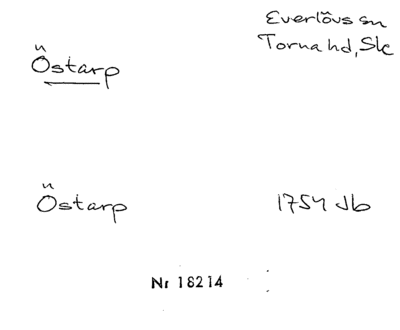 Everlövs sn
Torna hd, Sk
Östarp
Östarp
1754 Jb
Nr 18214